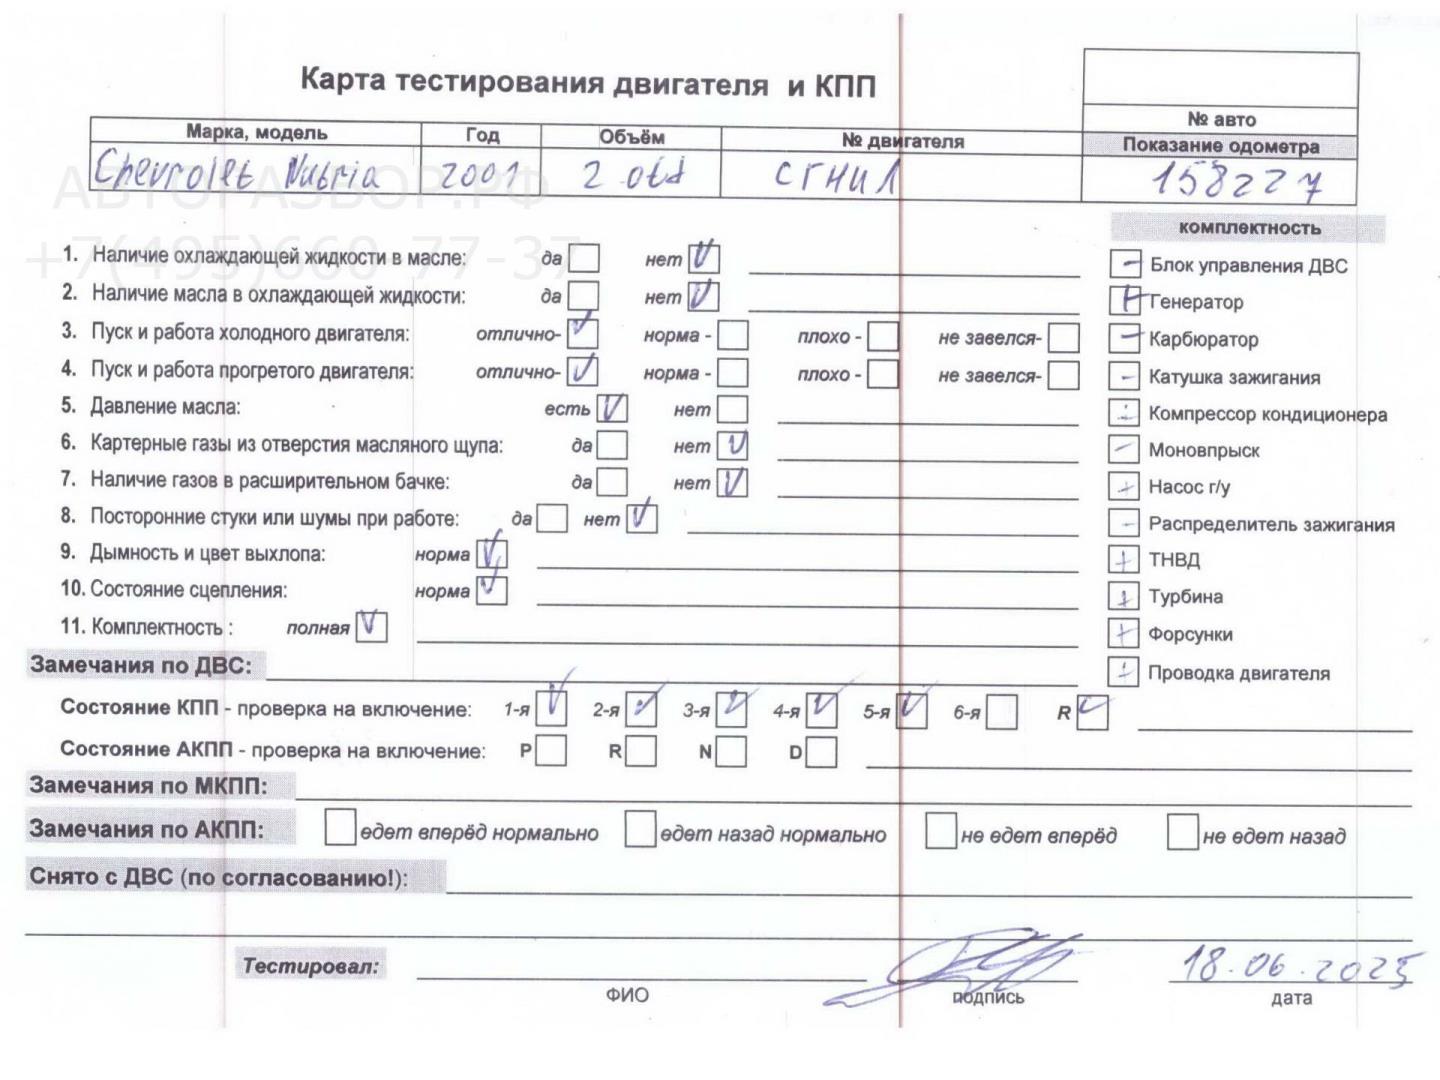 Карта тестирования двигателя и КПП
Марка, модель Год Объём № двигателя № авто
Показание одометра
Chevrolet Nubria 2001 2 otd СГНИЛ 158227
АВТОРАЗБОР.РФ
+7(495)660-77-37
комплектность
1. Наличие охлаждающей жидкости в масле: да нет V
- Блок управления ДВС
2. Наличие масла в охлаждающей жидкости: да нет V
+ Генератор
3. Пуск и работа холодного двигателя: отлично- V норма - плохо - не завелся-
- Карбюратор
4. Пуск и работа прогретого двигателя: отлично- V норма - плохо - не завелся-
- Катушка зажигания
5. Давление масла: есть V нет
Компрессор кондиционера
6. Картерные газы из отверстия масляного щупа: да нет V
- Моновпрыск
7. Наличие газов в расширительном бачке: да нет V
+ Насос г/у
8. Посторонние стуки или шумы при работе: да нет V
- Распределитель зажигания
9. Дымность и цвет выхлопа: норма V
+ ТНВД
10. Состояние сцепления: норма V
+ Турбина
11. Комплектность : полная V
+ Форсунки
Замечания по ДВС:
+ Проводка двигателя
Состояние КПП - проверка на включение: 1-я V 2-я V 3-я V 4-я V 5-я V 6-я R V
Состояние АКПП - проверка на включение: P R N D
Замечания по МКПП:
Замечания по АКПП: едет вперёд нормально едет назад нормально не едет вперёд не едет назад
Снято с ДВС (по согласованию!):
Тестировал: 18.06.2025
ФИО подпись дата